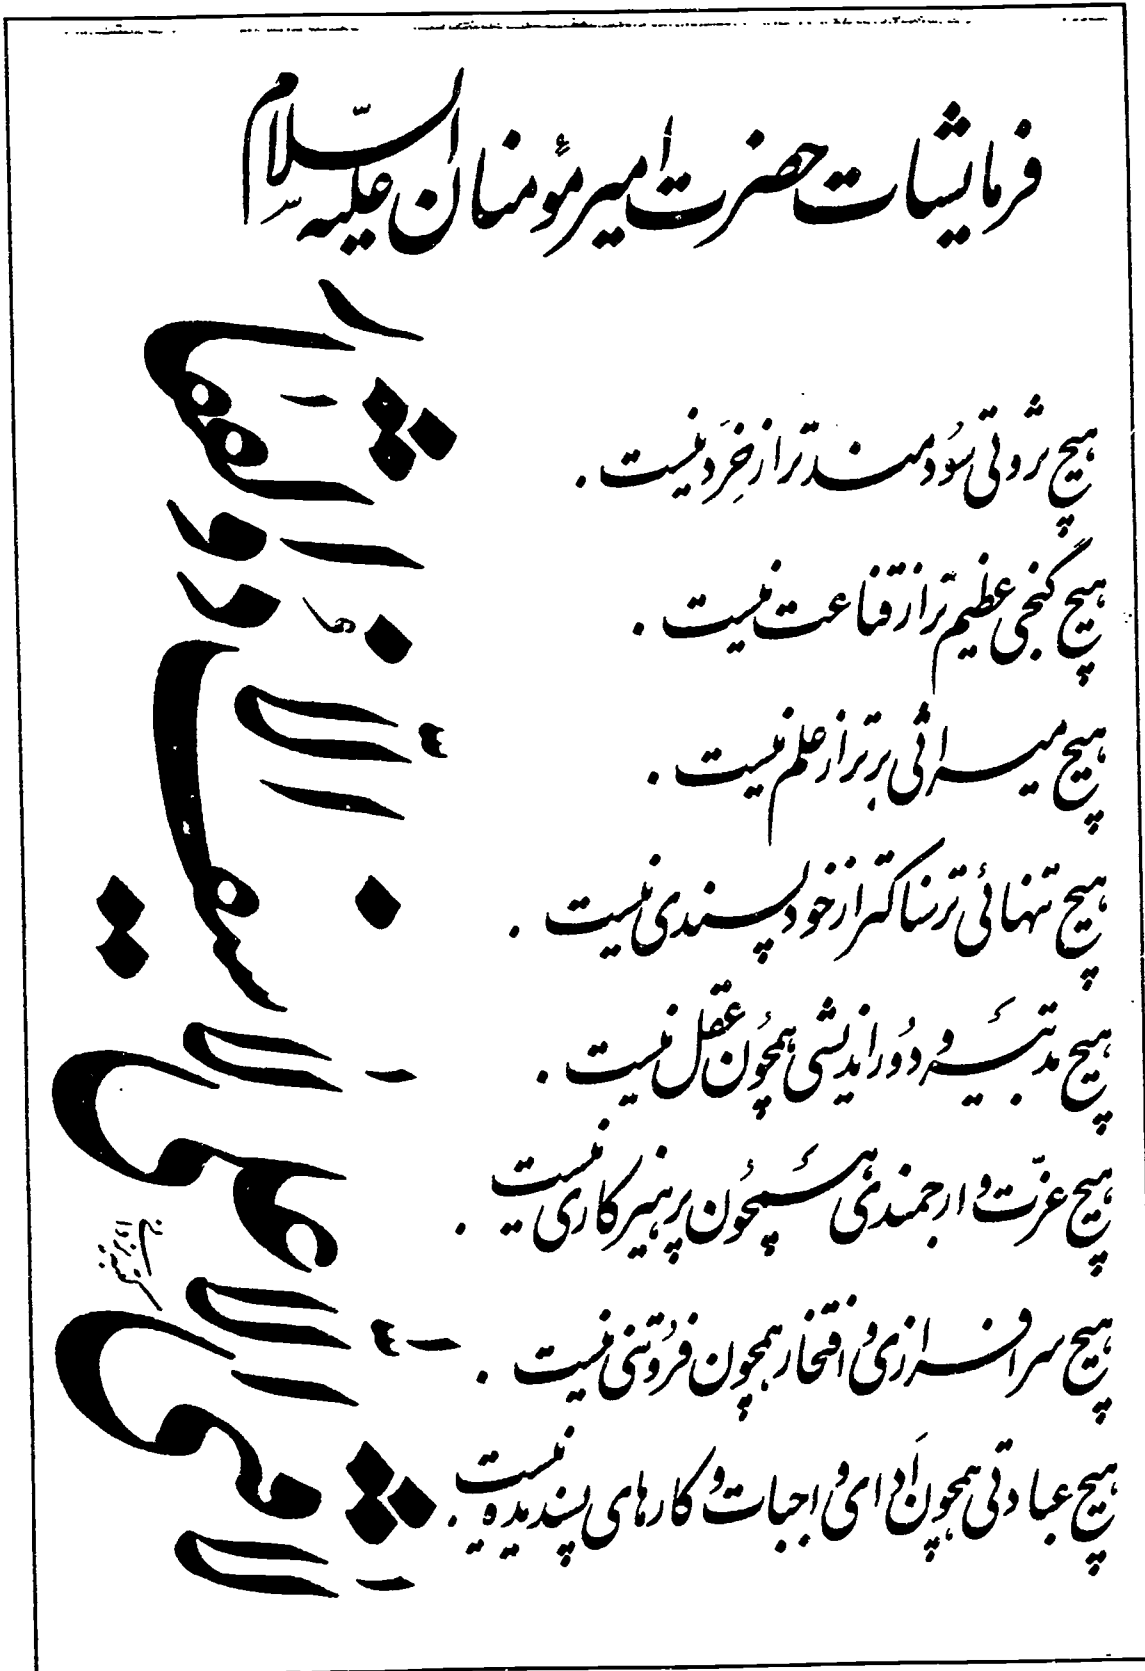 فرمایشات حضرت امیر مؤمنان علیه السّلام
هیچ ثروتی سُودمندتر از خِرَد نیست .
هیچ گنجی عظیم تر از قناعت نیست .
هیچ میراثی برتر از علم نیست .
هیچ تنهائی ترسناکتر از خودپسندی نیست .
هیچ تدبیر و دُوراندیشی همچُون عقل نیست .
هیچ عزّت و ارجمندی همچُون پرهیزکاری نیست .
هیچ سرافرازی و افتخار همچون فرُوتنی نیست .
هیچ عبادتی همچون اَدای واجبات و کارهای پسندیده نیست .
لافتی الّا علی لاسیف الّا ذوالفقار